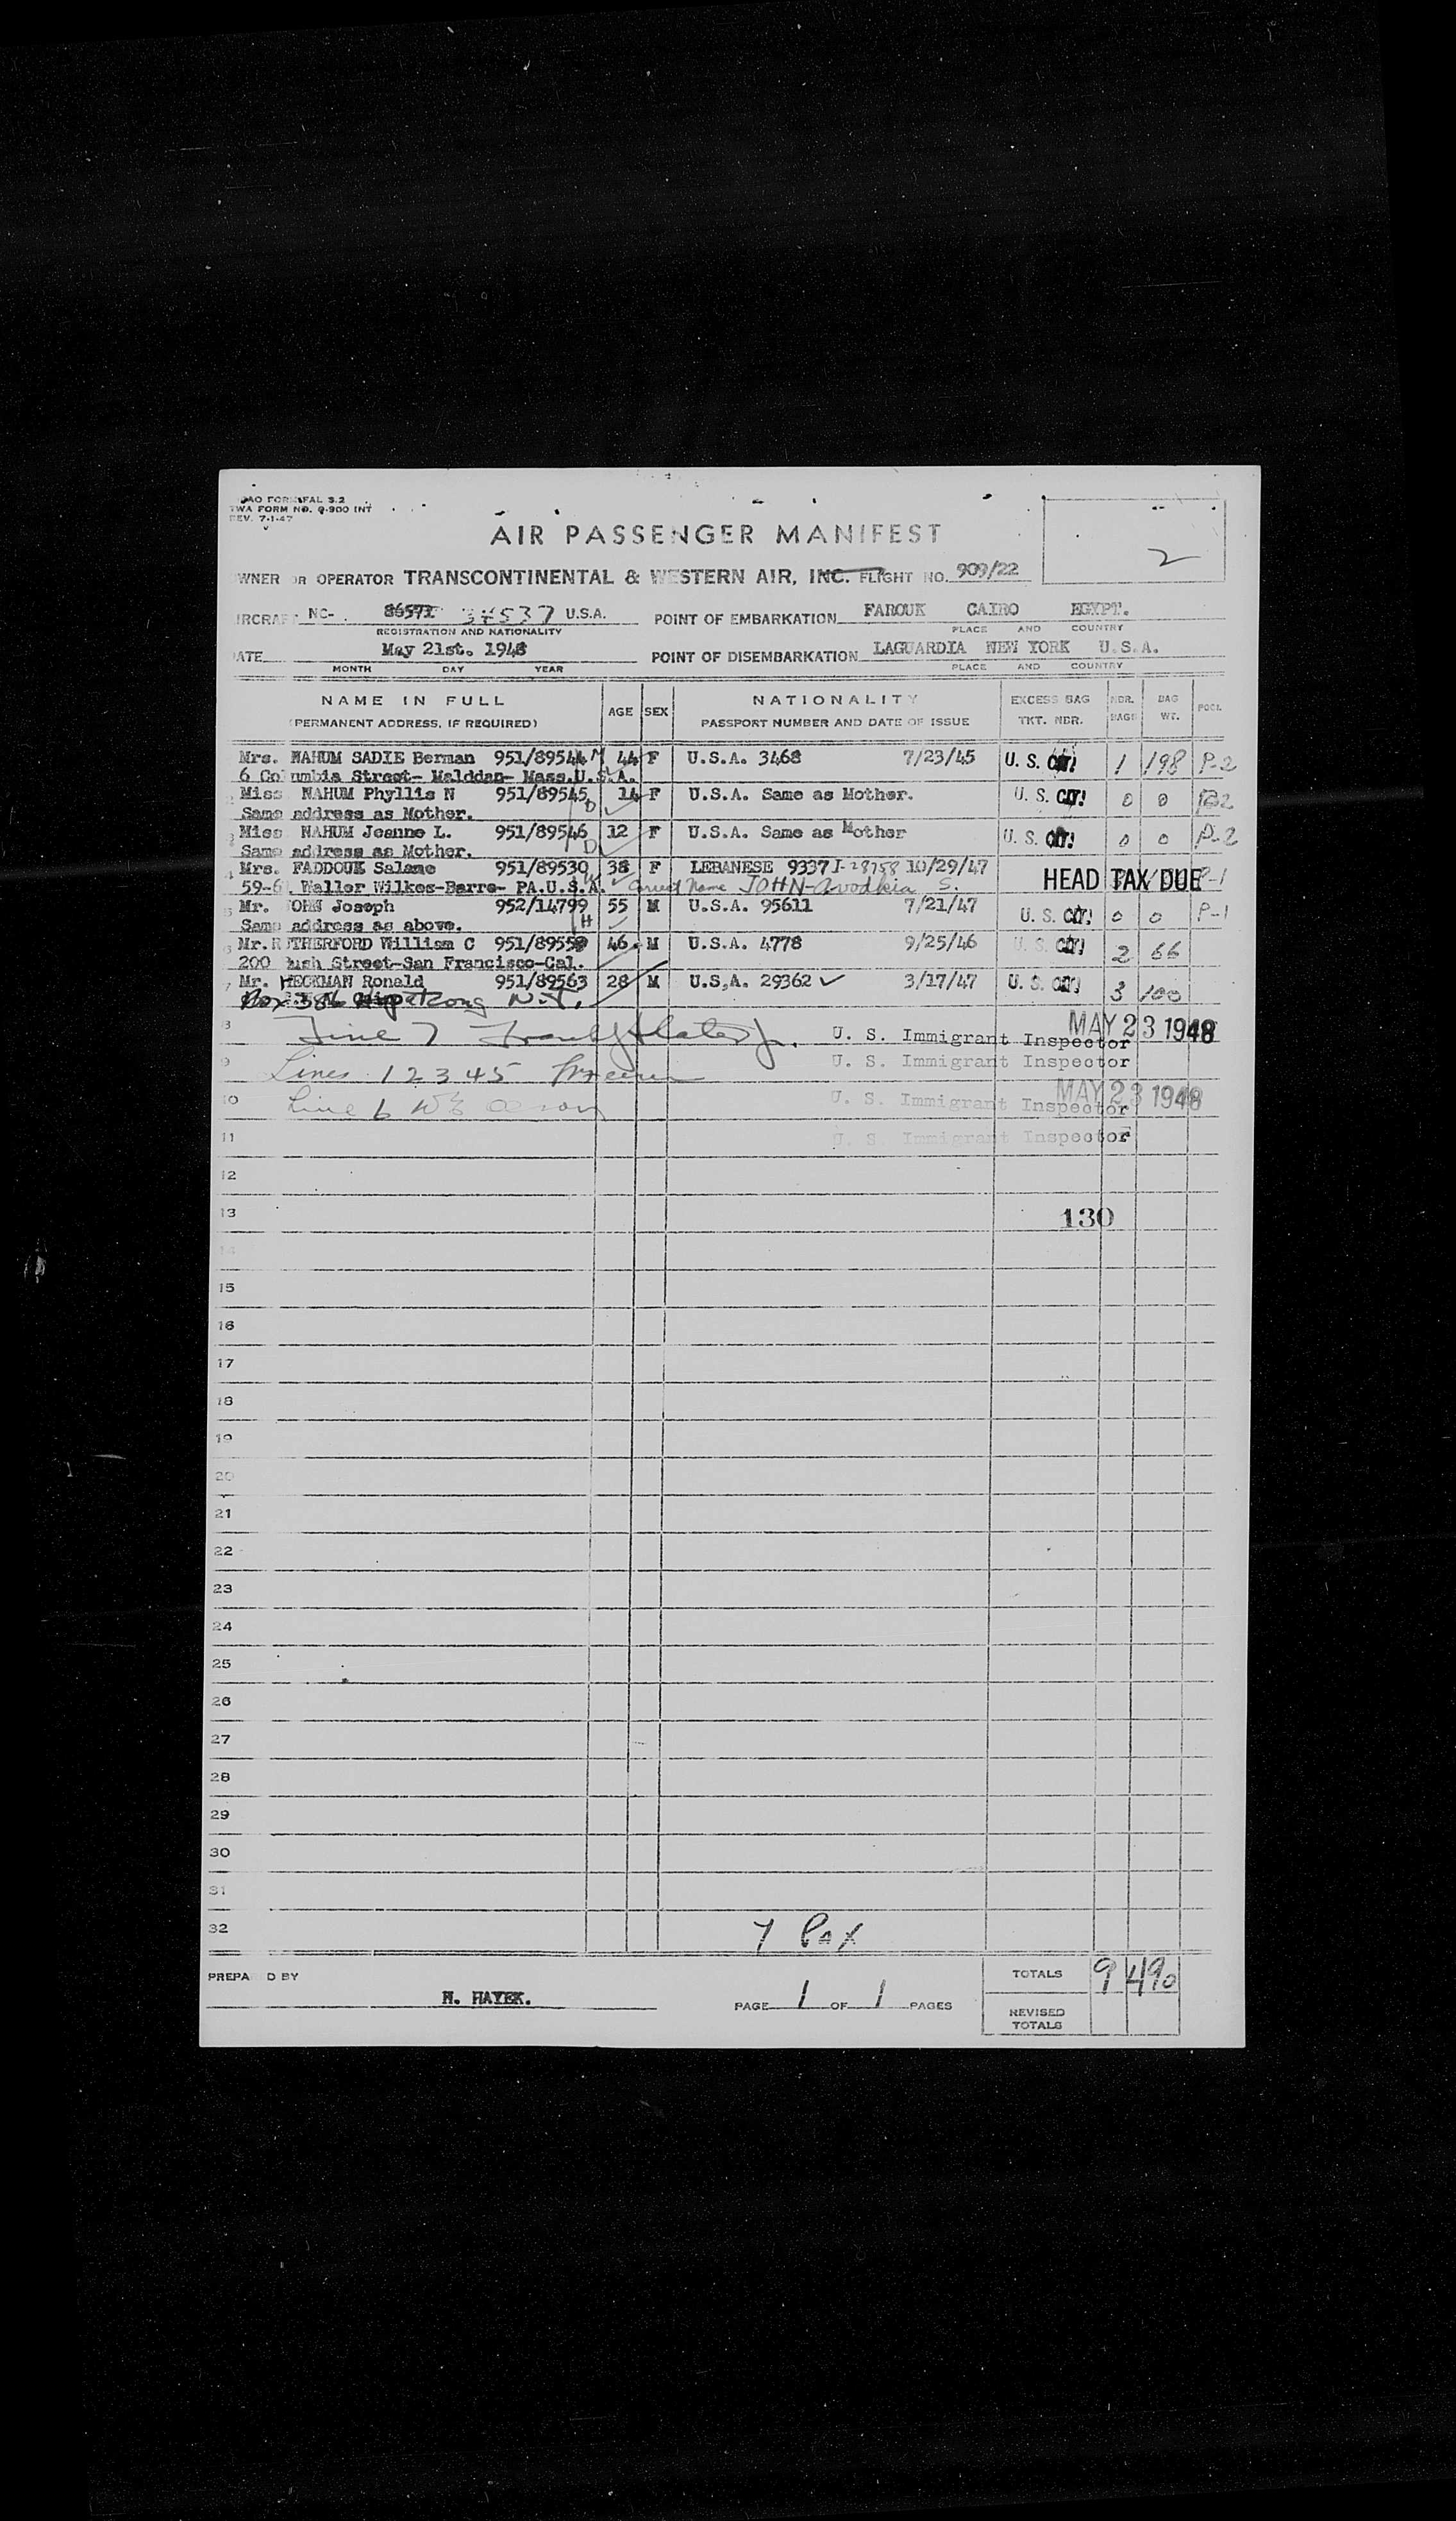 TWA FORM NO. Q-900 INT
REV. 7-1-47
AIR PASSENGER MANIFEST
2
OWNER OR OPERATOR TRANSCONTINENTAL & WESTERN AIR, INC. FLIGHT NO. 909/22
AIRCRAFT NC- 86571 U.S.A. POINT OF EMBARKATION FAROUK CAIRO EGYPT.
REGISTRATION AND NATIONALITY PLACE AND COUNTRY
DATE May 21st. 1948 POINT OF DISEMBARKATION LAGUARDIA NEW YORK U.S.A.
MONTH DAY YEAR PLACE AND COUNTRY
NAME IN FULL AGE SEX NATIONALITY EXCESS BAG NBR. BAG
(PERMANENT ADDRESS, IF REQUIRED) PASSPORT NUMBER AND DATE OF ISSUE TKT. NBR. BAGS WT.
Mrs. NAHUM SADIE Berman 951/89544 M 44 F U.S.A. 3468 7/23/45 U. S. CIT! 1 198 P-2
6 Columbia Street- Malddan- Mass.U.S.A.
2 Miss NAHUM Phyllis N 951/89545 D 14 F U.S.A. Same as Mother. U. S. CIT! 0 0 P-2
Same address as Mother.
3 Miss NAHUM Jeanne L. 951/89546 D 12 F U.S.A. Same as Mother U. S. CIT! 0 0 P-2
Same address as Mother.
4 Mrs. FADDOUK Salame 951/89530 W 38 F LEBANESE 9337 10/29/47 HEAD TAX DUE P-1
Waller Wilkes-Barre- PA.U.S.A. Correct Name JOHN S.
5 Mr. JOHN Joseph 952/14799 H 55 M U.S.A. 95611 7/21/47 U. S. CIT! 0 0 P-1
Same address as above.
6 Mr. RUTHERFORD William C 951/89559 46 M U.S.A. 4778 9/25/46 U. S. CIT! 2 66
200 Bush Street-San Francisco-Cal.
7 Mr. HECKMAN Ronald 951/89563 28 M U.S.A. 29362 3/17/47 U. S. CIT! 3 100
Box 386 N.Y.
8 Line 7 U. S. Immigrant Inspector MAY 23 1948
9 Lines 1 2 3 4 5 U. S. Immigrant Inspector
10 Line 6 U. S. Immigrant Inspector MAY 23 1948
11 U. S. Immigrant Inspector
12
13 130
14
15
16
17
18
19
20
21
22
23
24
25
26
27
28
29
30
31
32 7 Pax
PREPARED BY N. HAYEK. PAGE 1 OF 1 PAGES TOTALS 9 490
REVISED
TOTALS